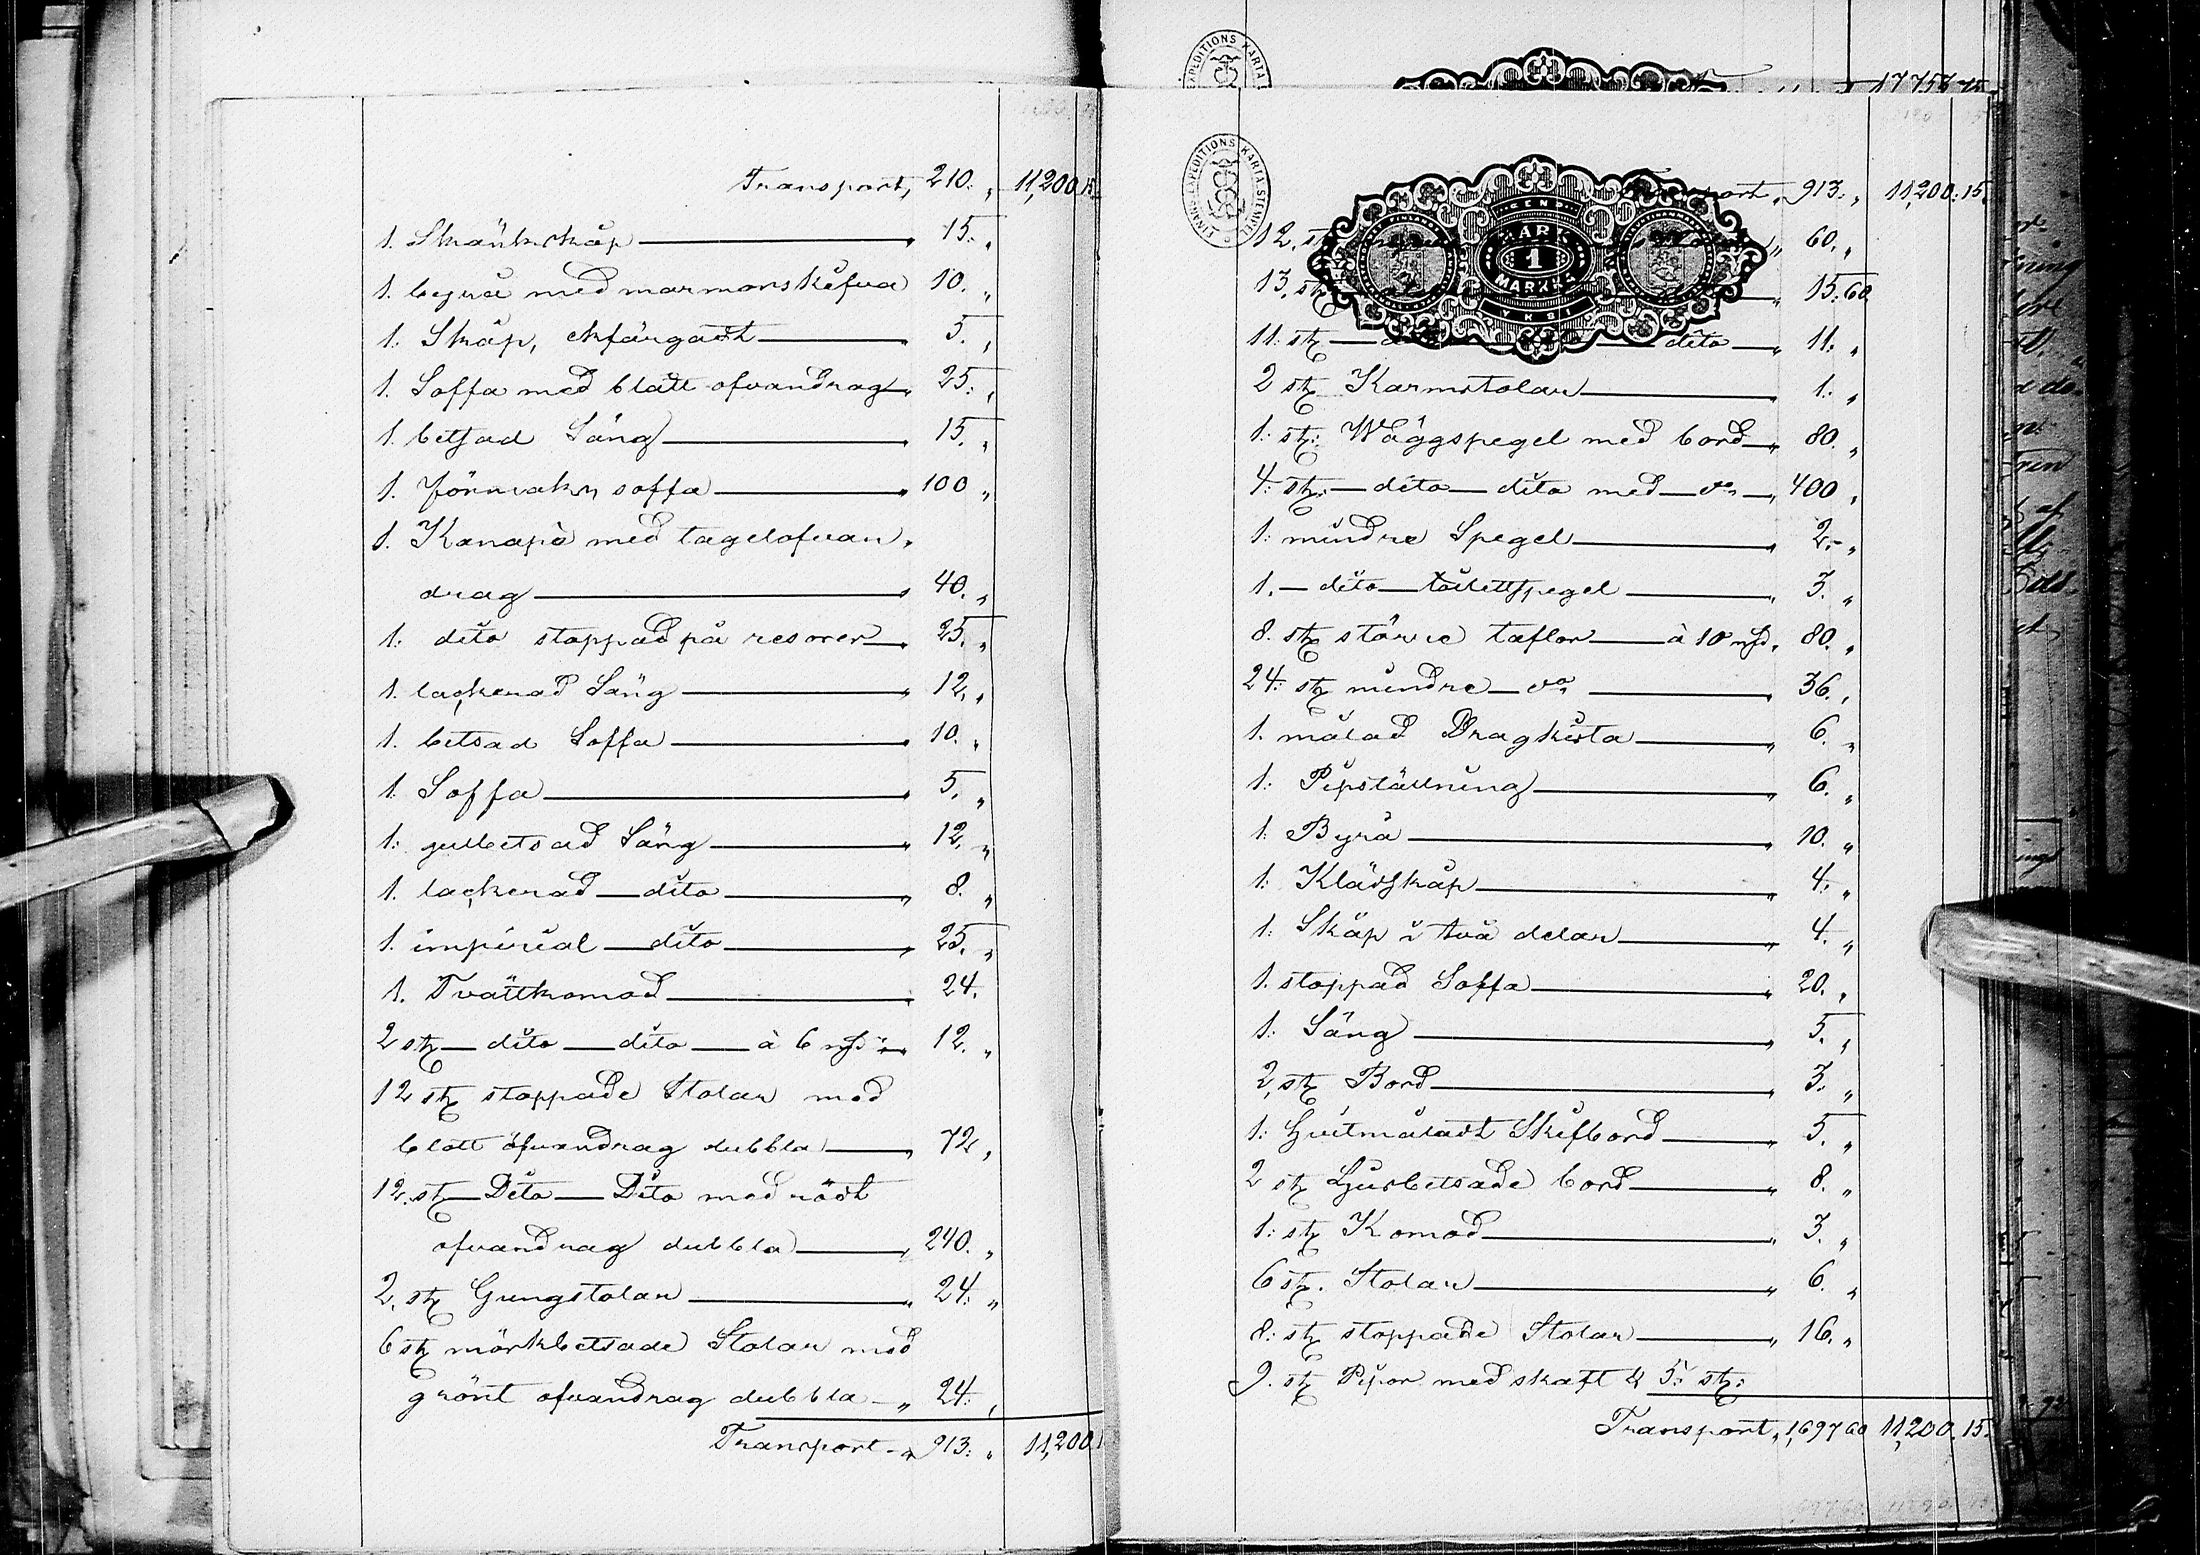 Transport, 210. „ 11,200.15.
1. Skänkskåp „ 15. „
1. byrå med marmorskifva 10. „
1. Skåp, ekfärgadt „ 5. „
1. Soffa med blått ofvandrag „ 25. „
1. betsad Säng „ 15. „
1. Förmaks soffa „ 100 „
1. Kanapé med tagelofvan-
drag „ 40. „
1. dito stoppad på resorer „ 25. „
1. lackerad Säng „ 12. „
1. betsad Soffa „ 10. „
1. Soffa „ 5. „
1. gulbetsad Säng „ 12. „
1. lackerad dito „ 8. „
1. imperial dito „ 25. „
1. Tvättkomod „ 24.
2 st dito dito à 6 mk „ 12. „
12 st stoppade Stolar med
blått öfvandrag dubbla „ 72 „
12. st Dito Dito med rödt
ofvandrag dubbla „ 240. „
2. st Gungstolar „ 24. „
6 st mörkbetsade Stolar med
grönt ofvandrag dubbla „ 24. „
Transport „ 913. „ 11,200.
17757 15.
FINNS EXPEDITIONS KARTA STEMPEL
Transport „ 913. „ 11,200.15.
12. st „ 60. „
EN MARK
1
MARKKA
YKSI
13. st „ 15.60
11. st dito „ 11. „
2 st Karmstolar „ 1. „
1. st: Wäggspegel med bord „ 80. „
4. st: dito dito med do „ 400 „
1. mindre Spegel „ 2.- „
1. dito toilettspegel „ 3. „
8. st större taflor à 10 mk. 80. „
24. st mindre do „ 36. „
1. målad Dragkista „ 6. „
1. Pipställning „ 6. „
1. Byrå „ 10. „
1. Klädskåp „ 4. „
1. Skåp i två delar „ 4. „
1. stoppad Soffa „ 20. „
1. Säng „ 5. „
2. st Bord „ 3. „
1. Hvitmåladt Skifbord „ 5. „
2 st Ljusbetsade bord „ 8. „
1. st Komod „ 3. „
6 st. Stolar „ 6. „
8. st stoppade Stolar „ 16. „
9. st Pipor med skaft & 5. st:
Transport „ 1,697 60 11,200.15.